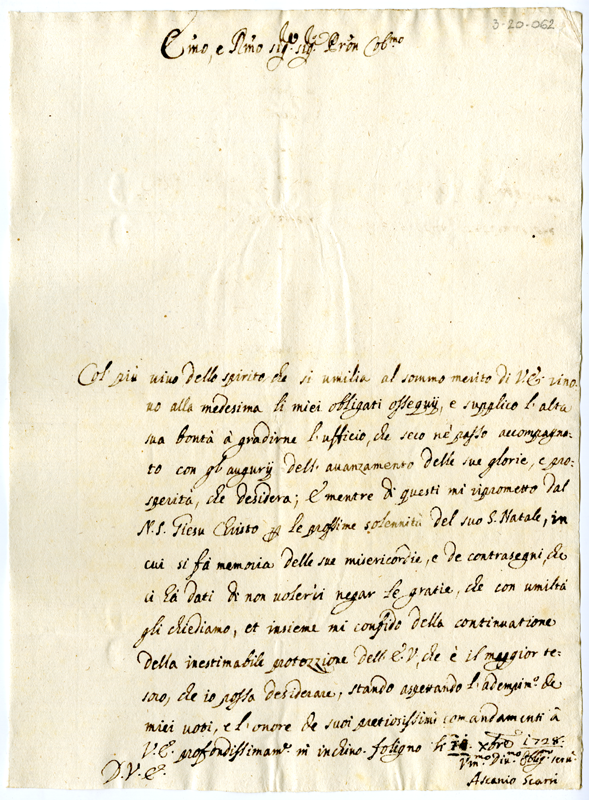 3-20-062
Emo, e Rmo Sigr. Sigr. Pron Colmo
Col più vivo dello spirito, che si umilia al sommo merito di V.E. rino-
vo alla medesima li miei obligati ossequij, e supplico l'alta
sua bontà à gradirne l'ufficio, che seco nè passo accompagna-
to con gl'augurij dell'avanzamento delle sue glorie, e pro-
sperità, che desidera; E mentre di questi mi riprometto dal
N.S. Giesu Christo per le prossime solennità del suo S. Natale, in
cui si fà memoria delle sue misericordie, e de contrasegni, che
ci hà dati di non volerci negar le gratie, che con umiltà
gli chiediamo, et insieme mi confido della continuatione
della inestimabile protezzione dell'E.V, che è il maggior te-
soro, che io possa desiderare, stando aspettando l'adempimo. de
miei voti, e l'onore de suoi pretiosissimi comandamenti à
V.E. profondissimame. m'inchino. foligno li Xbre 1728.
D.V.E.
Vmo. Divmo. Obligmo. seru.
Ascanio Scarri